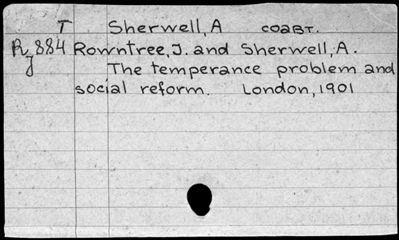 T Sherwell, A соавт.
Rz 884 Rowntree, J. and Sherwell, A.
The temperance problem and
social reform. London, 1901